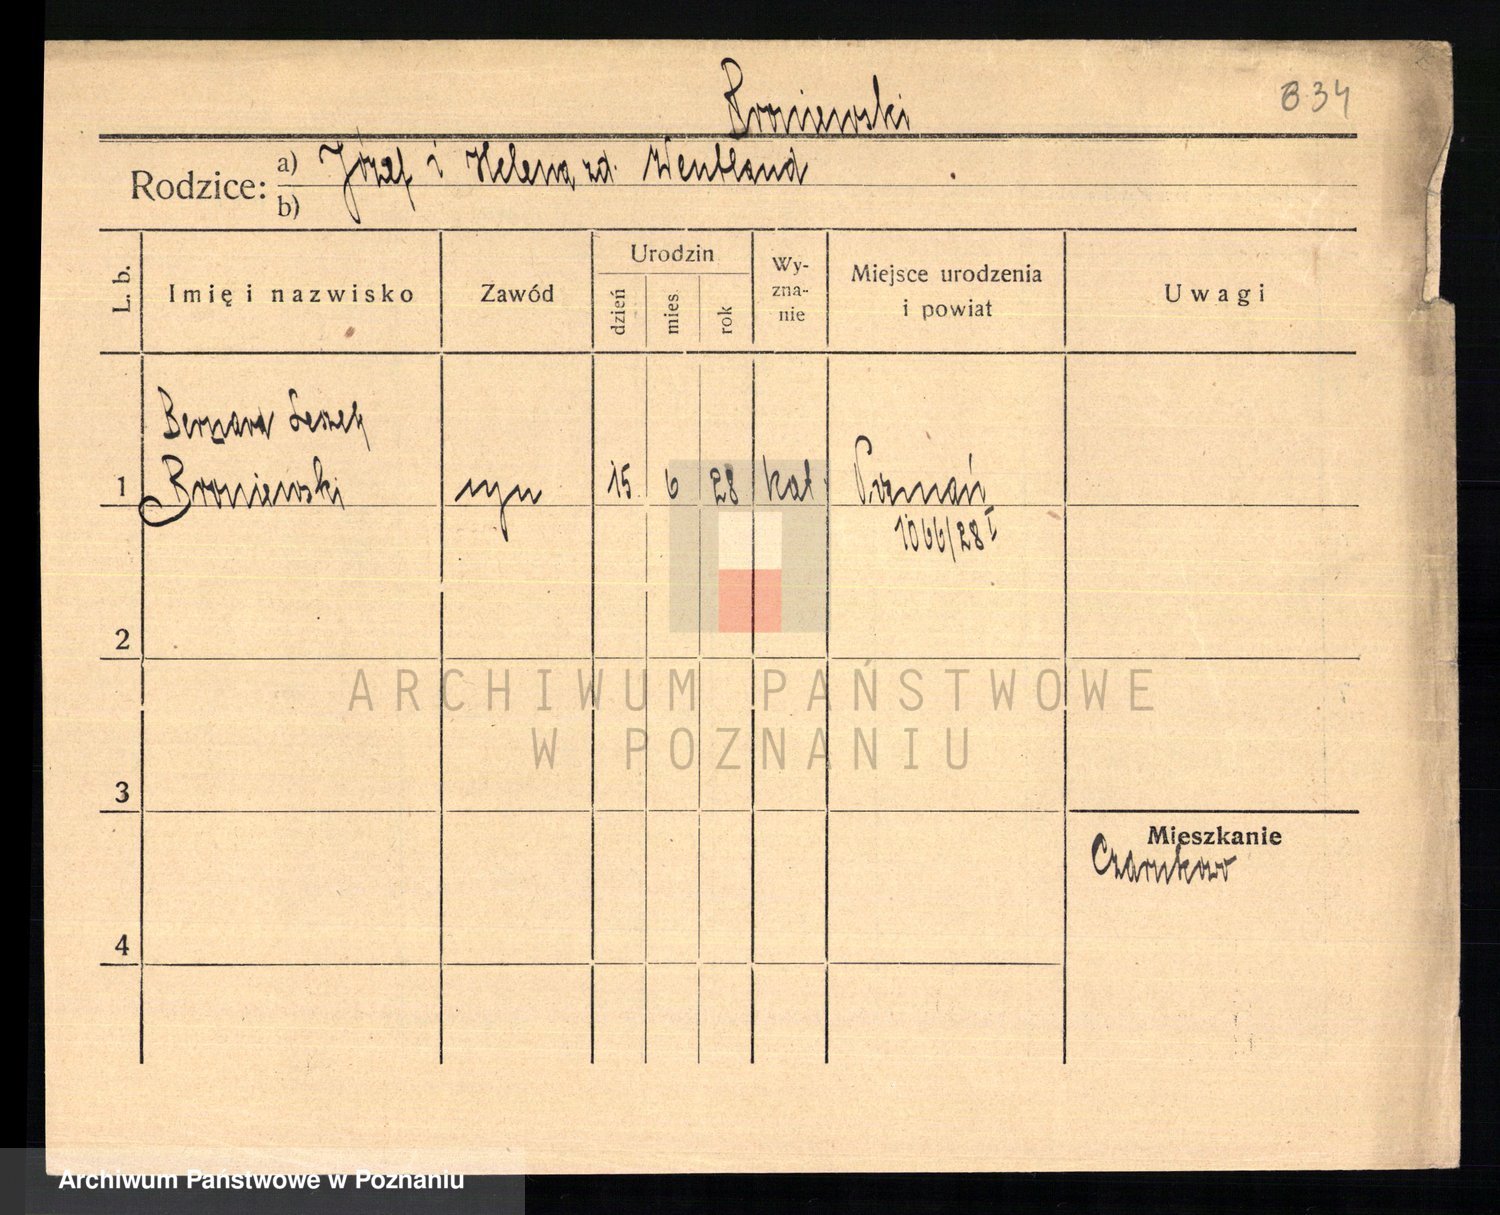 Broniewski
B 34
Rodzice: a) Józef i Helena zd. Wentland
b)
L. b.
Imię i nazwisko
Zawód
Urodzin
dzień
mies
rok
Wy-
zna-
nie
Miejsce urodzenia
i powiat
Uwagi
Bernard Leszek
1 Broniewski syn 15 6 28 kat. Poznań
1066/28 I
2
3
Mieszkanie
Czarnków
4
ARCHIWUM PAŃSTWOWE
W POZNANIU
Archiwum Państwowe w Poznaniu